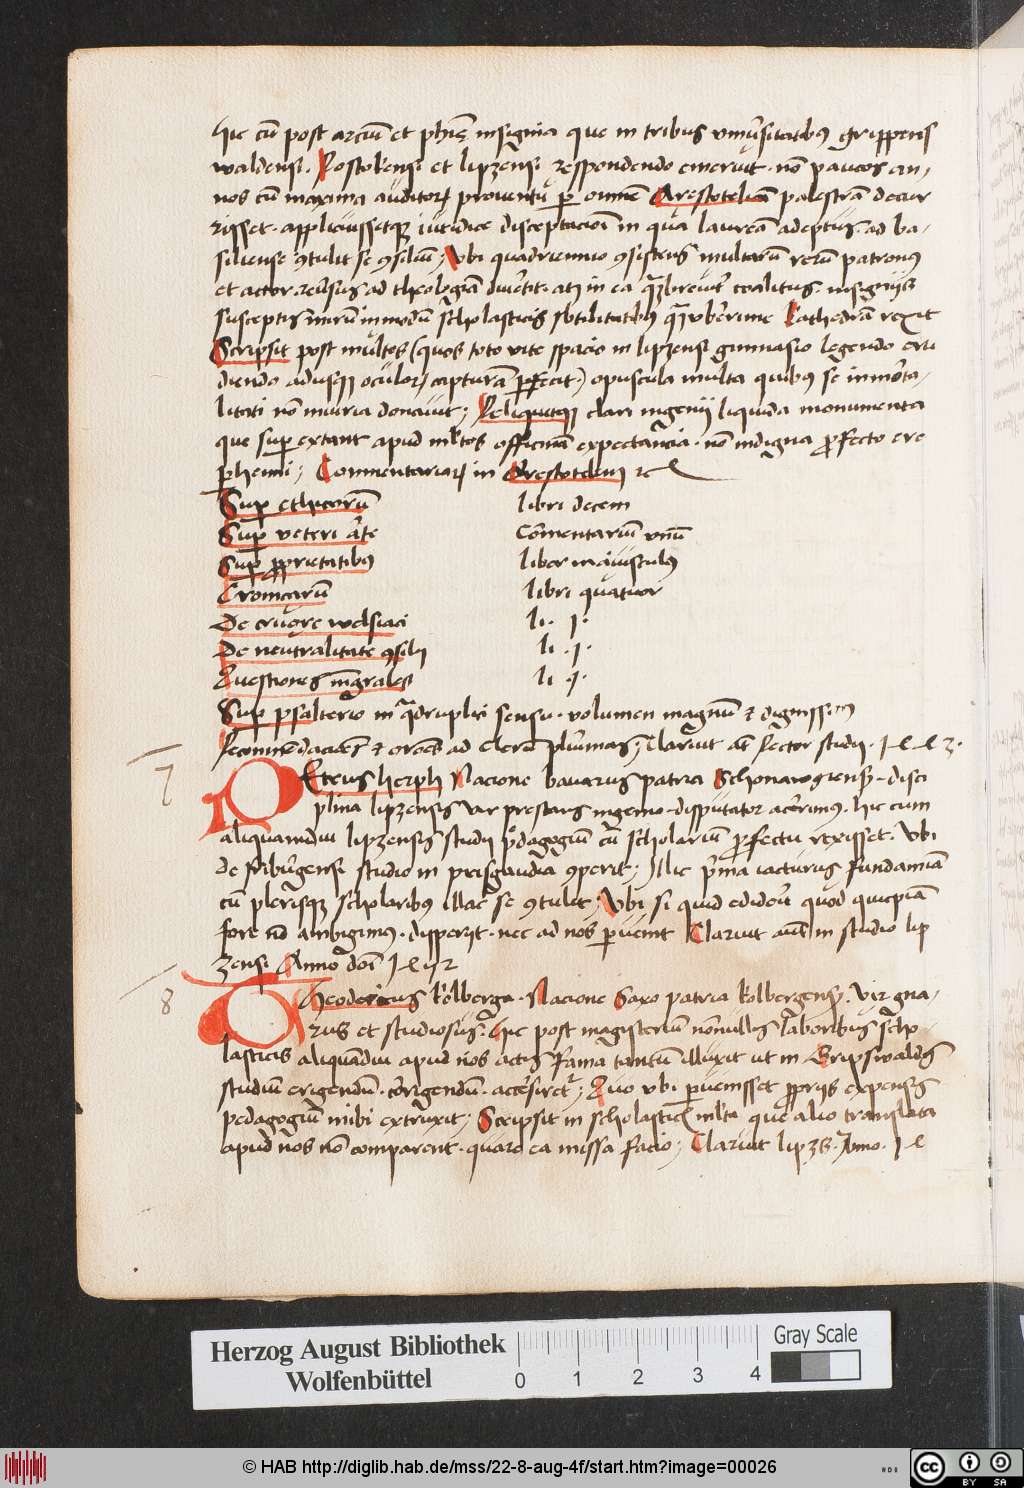 hic cū post arciū et phīe insignia que in tribus vniūsitatibus Grippens
waldensi. Rostokēnsi et lipzensi respondendo emeruit. nō paucos an-
nos cū maxima auditorꝝ proventū ꝑ omnē Arestotelicā palestrā decur
risset. applicuissetqꝫ iuridice disceptacioni in qua laureā adeptus. ad ba-
siliense ꝯtulit se ꝯsiliū; Vbi quadriennio ꝯsistens multarū rerū patronus
et actor. rēssus ad theologiā diūtit. atqꝫ in ea breuit coalitus. insignijs
susceptis mirū inmodū scholasticis sbtilitatibus vberrime Kathedrā rexit
Scripsit post multos (quos toto vite spacio in lipzensi gimnasio legendo eru
diendo adusqꝫ oculorꝝ capturā ꝑfecit.) opuscula multa quibus se inmōrta-
litati nō iniuria donauit; Reliquitqꝫ clari ingenij liquida monumenta
que suꝑ extant apud mltos officinā expectancia. nō indigna ꝓfecto ere
ꝑhenni; Commentariorꝝ in Arestotelem
Suꝑ ethicorū libri decem
Suꝑ veteri arte Cōmentariū vnū
Suꝑ ꝓprietatibus liber maiusculus
Cronicarū libri quatuor
De cruore welsnaci li. j.
De neutralitate ꝯsilij li .j.
Questiones mgrales li j.
Suꝑ psalterio in qdruplici sensu. volumen magnū & digniss
Recommēdaciōes & orōes ad Clerū plurimas; Claruit at Rector studij.
7
PEtrus herph Nacione bavarus patria Schonawgiens. disci
plina lipzensis vir prestans ingenio. disputator acerrimus. hic cum
aliquamdiu lipzensis studij pedagogiū cū scholariū ꝓfectu rexisset. Vbi
de friburgensi studio in prisgaudia ꝯperit; Illic prima iacturus fundamta
cū plerisqꝫ scholaribus illac se ꝯtulit; Vbi si quid edidert quod quicpiā
fore nō ambigimus. disperijt. nec ad nos ꝑuenit Claruit aut in studio lip
zensi Anno dni
8
THeodericus kolberga. Nacione Saxo patria kolbergens. Vir gna-
rus et studiosus. hic post magisteriū nōnullis laboribus scho
lasticis aliquādiu apud nos actis fama tantū illuxit ut in Gripswaldis
studiū erigendū. corigendū. accersiret; Quo vbi ꝑuenisset ꝓprijs expensis
pedagogiū inibi extruxit; Scripsit in scholasticis mlta que alio translata
apud nos nō comparent. quare ea missa facio; Claruit lipzs. Anno.
Herzog August Bibliothek
Wolfenbüttel
0 1 2 3 4
Gray Scale
© HAB http://diglib.hab.de/mss/22-8-aug-4f/start.htm?image=00026
HAB
cc BY SA